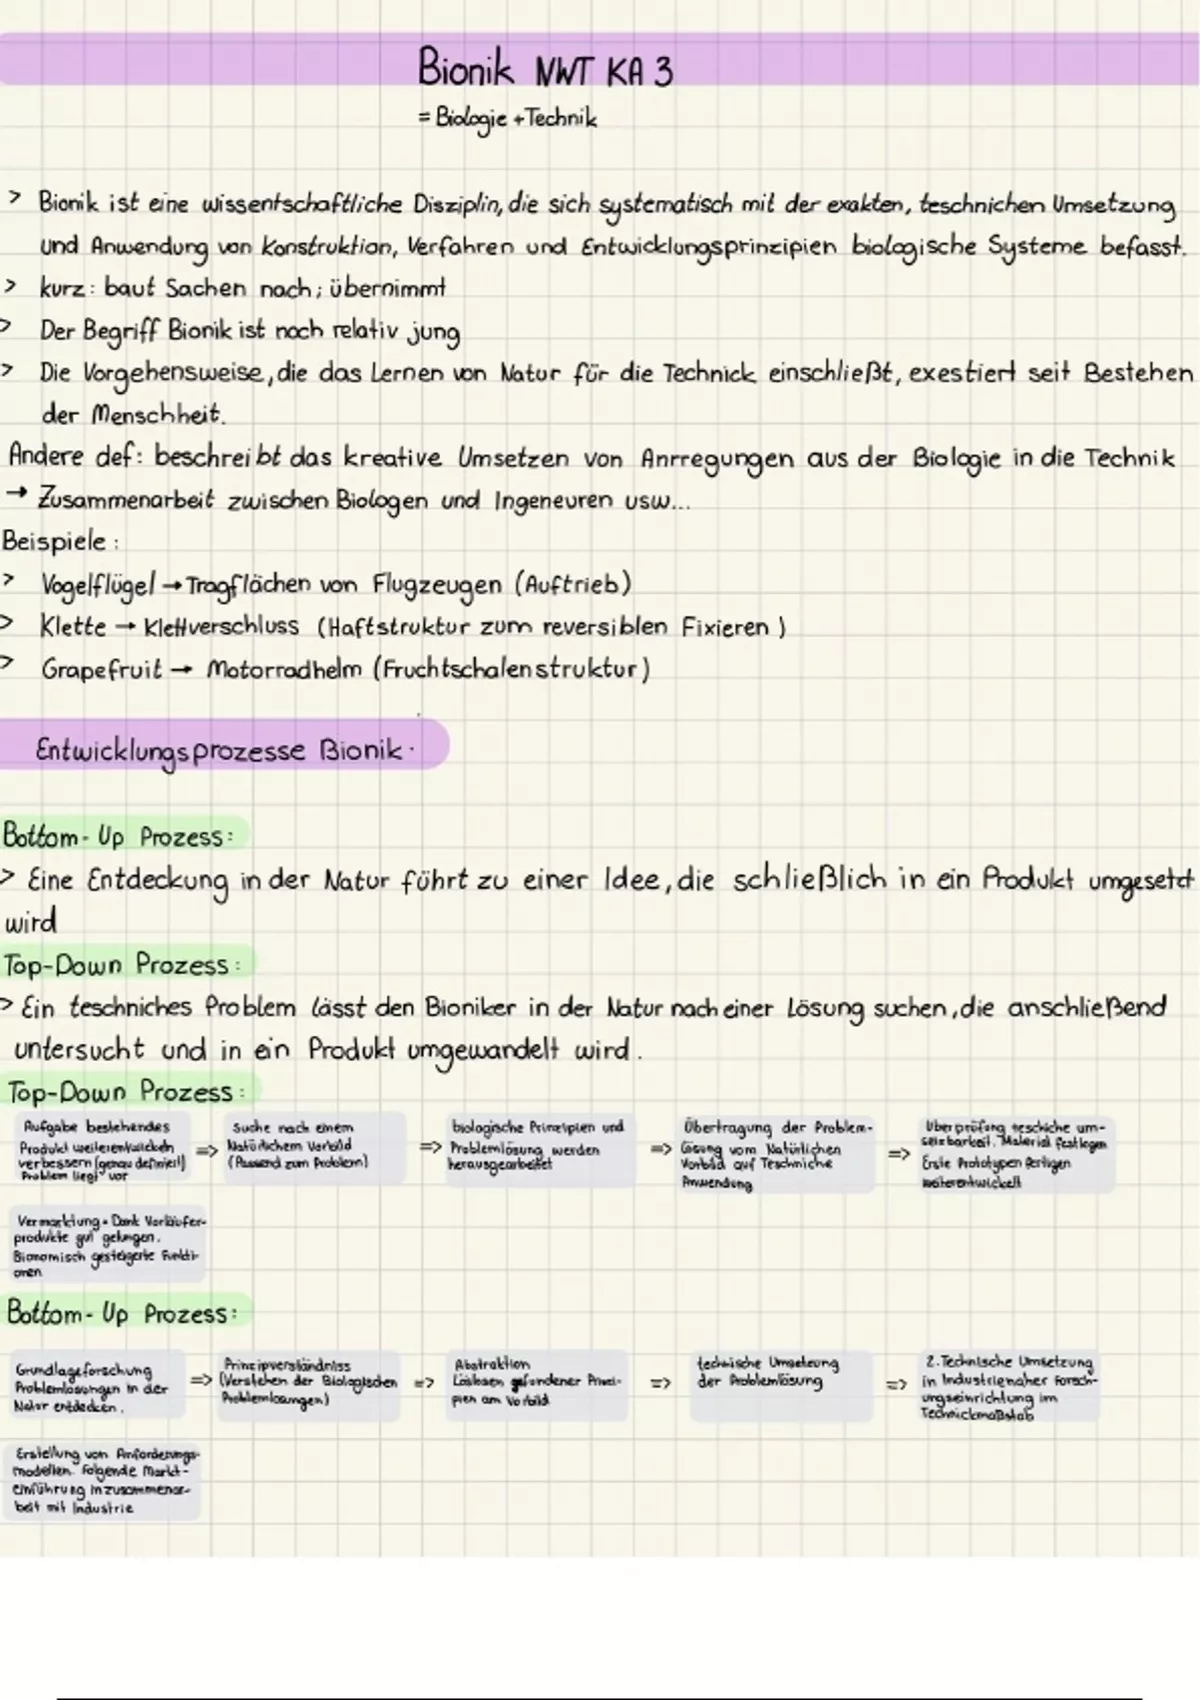 Bionik NWT KA 3
= Biologie + Technik
> Bionik ist eine wissentschaftliche Disziplin, die sich systematisch mit der exakten, teschnichen Umsetzung
und Anwendung von Konstruktion, Verfahren und Entwicklungsprinzipien biologische Systeme befasst.
> kurz: baut Sachen nach; übernimmt
> Der Begriff Bionik ist noch relativ jung
> Die Vorgehensweise, die das Lernen von Natur für die Technick einschließt, exestiert seit Bestehen
der Menschheit.
Andere def: beschreibt das kreative Umsetzen von Anrregungen aus der Biologie in die Technik
→ Zusammenarbeit zwischen Biologen und Ingeneuren usw...
Beispiele:
> Vogelflügel → Tragflächen von Flugzeugen (Auftrieb)
> Klette → Klettverschluss (Haftstruktur zum reversiblen Fixieren)
> Grapefruit → Motorradhelm (Fruchtschalenstruktur)
Entwicklungsprozesse Bionik.
Bottom-Up Prozess:
> Eine Entdeckung in der Natur führt zu einer Idee, die schließlich in ein Produkt umgesetzt
wird
Top-Down Prozess:
> Ein teschniches Problem lässt den Bioniker in der Natur nach einer Lösung suchen, die anschließend
untersucht und in ein Produkt umgewandelt wird.
Top-Down Prozess:
Aufgabe bestehendes
Produkt weiterentwickeln
verbessern (genau definiert)
Problem liegt vor
=>
Suche nach einem
Natürlichem Vorbild
(Passend zum Problem)
=>
biologische Prinzipien und
Problemlösung werden
herausgearbeitet
=>
Übertragung der Problem-
lösung vom Natürlichen
Vorbild auf Teschniche
Anwendung
=>
Überprüfung teschiche um-
setzbarkeit. Material festlegen
Erste Prototypen fertigen
weiterentwickelt
Vermarktung = Dank Vorläufer-
produkte gut gelungen.
Bionomisch gesteigerte Funkti-
onen
Bottom-Up Prozess:
Grundlageforschung
Problemlösungen in der
Natur entdecken.
=>
Prinzipverständniss
(Verstehen der Biologischen
Problemlösungen)
=>
Abstraktion
Loslösen gefundener Prinzi-
pien am Vorbild
=>
technische Umsetzung
der Problemlösung
=>
2. Technische Umsetzung
in Industrienaher Forsch-
ungseinrichtung im
Technickmaßstab
Erstellung von Anforderungs-
modellen. Folgende Markt-
einführung in zusammenar-
beit mit Industrie